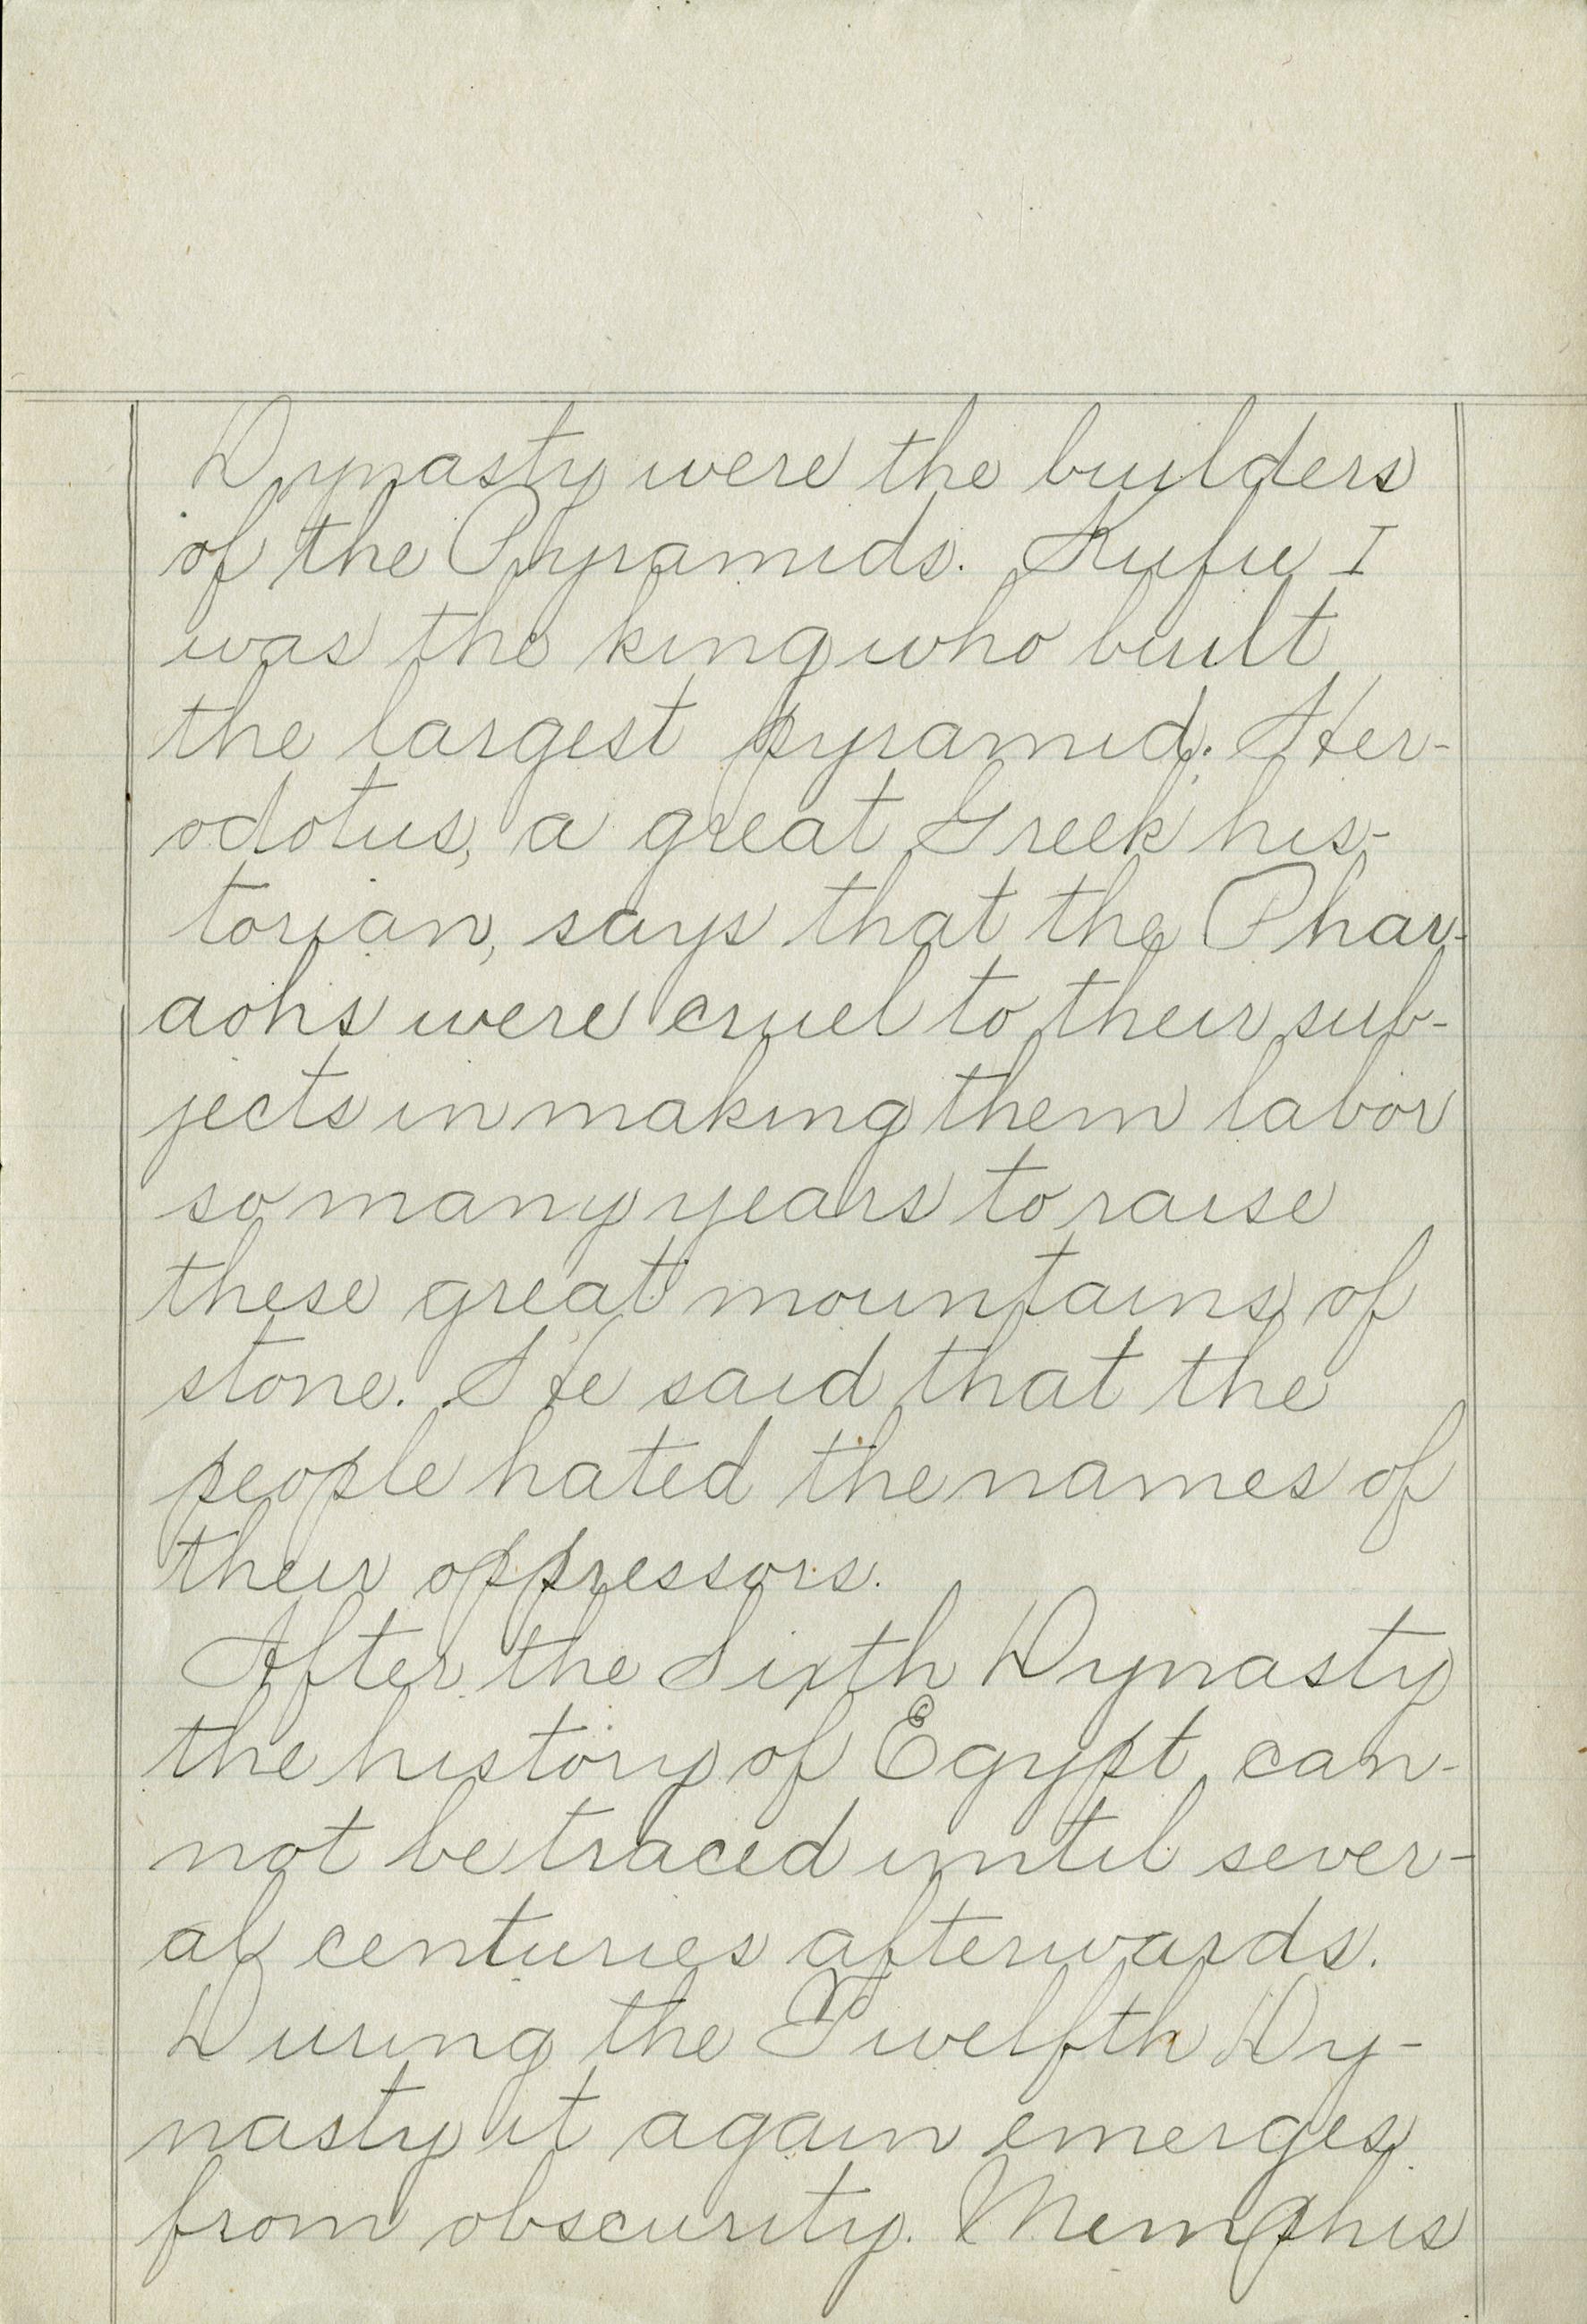 Dynasty were the builders
of the Pyramids. Kufu I
was the king who built
the largest pyramid. Her-
odotus, a great Greek his-
torian, says that the Phar-
aohs were cruel to their sub-
jects in making them labor
so many years to raise
these great mountains of
stone. He said that the
people hated the names of
their oppressors.
After the Sixth Dynasty
the history of Egypt can-
not be traced until sever-
al centuries afterwards.
During the Twelfth Dy-
nasty it again emerges
from obscurity. Memphis